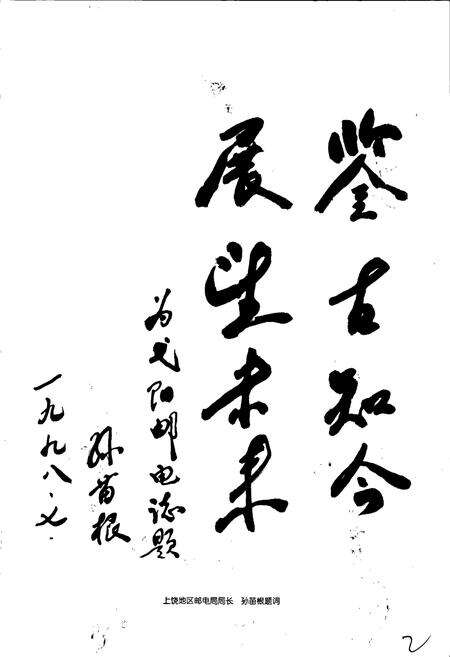 鉴古知今
展望未来
为弋阳邮电志题
孙苗根
一九九八.七.
上饶地区邮电局局长 孙苗根题词
2